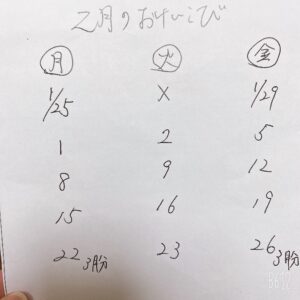 2月のおけいこび
月 火 金
1/25 × 1/29
1 2 5
8 9 12
15 16 19
22 3月分 23 26 3月分
B612